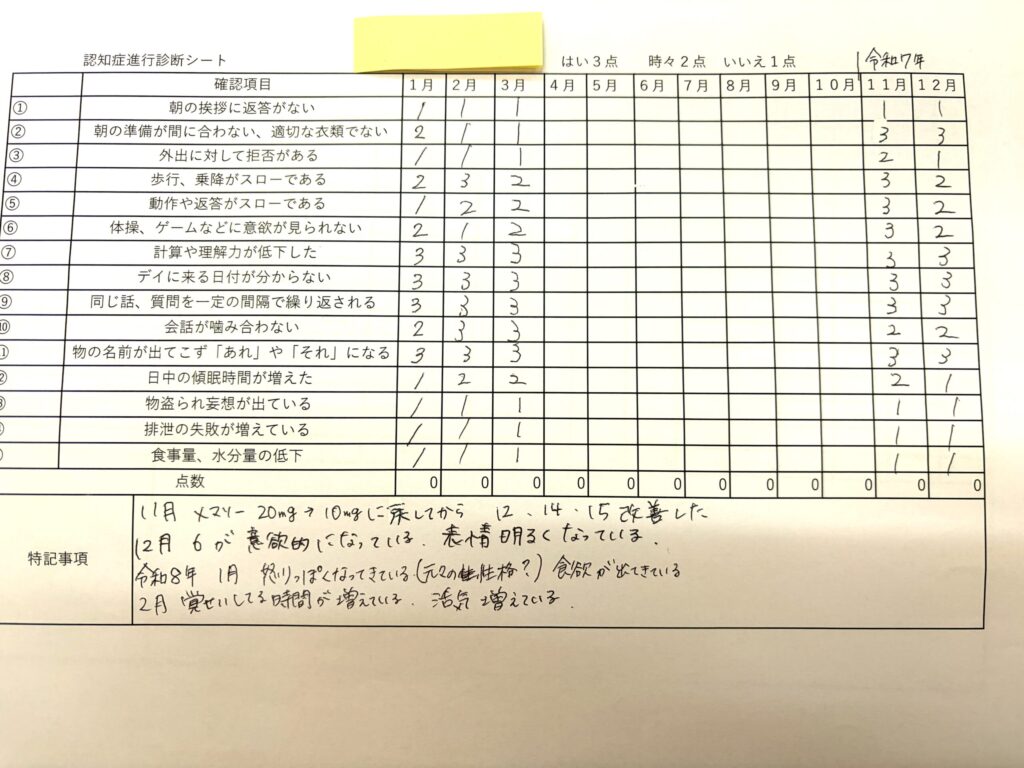 認知症進行診断シート はい３点 時々２点 いいえ１点 令和7年
確認項目 １月 ２月 ３月 ４月 ５月 ６月 ７月 ８月 ９月 １０月 １１月 １２月
① 朝の挨拶に返答がない 1 1 1 1 1
② 朝の準備が間に合わない、適切な衣類でない 2 1 1 3 3
③ 外出に対して拒否がある 1 1 1 2 1
④ 歩行、乗降がスローである 2 3 2 3 2
⑤ 動作や返答がスローである 1 2 2 3 2
⑥ 体操、ゲームなどに意欲が見られない 2 1 2 3 2
⑦ 計算や理解力が低下した 3 3 3 3 3
⑧ デイに来る日付が分からない 3 3 3 3 3
⑨ 同じ話、質問を一定の間隔で繰り返される 3 3 3 3 3
⑩ 会話が噛み合わない 2 3 3 2 2
物の名前が出てこず「あれ」や「それ」になる 3 3 3 3 3
日中の傾眠時間が増えた 1 2 2 2 1
物盗られ妄想が出ている 1 1 1 1 1
排泄の失敗が増えている 1 1 1 1 1
食事量、水分量の低下 1 1 1 1 1
点数 0 0 0 0 0 0 0 0 0 0 0 0
特記事項
11月 メマリー 20mg→10mgに 12、14、15改善した
12月 6が意欲的になっている、表情明るくなっている、
令和8年 1月 怒りっぽくなってきている(元々の性格?)食欲が出てきている
2月 覚せいしてる時間が増えている、活気増えている、